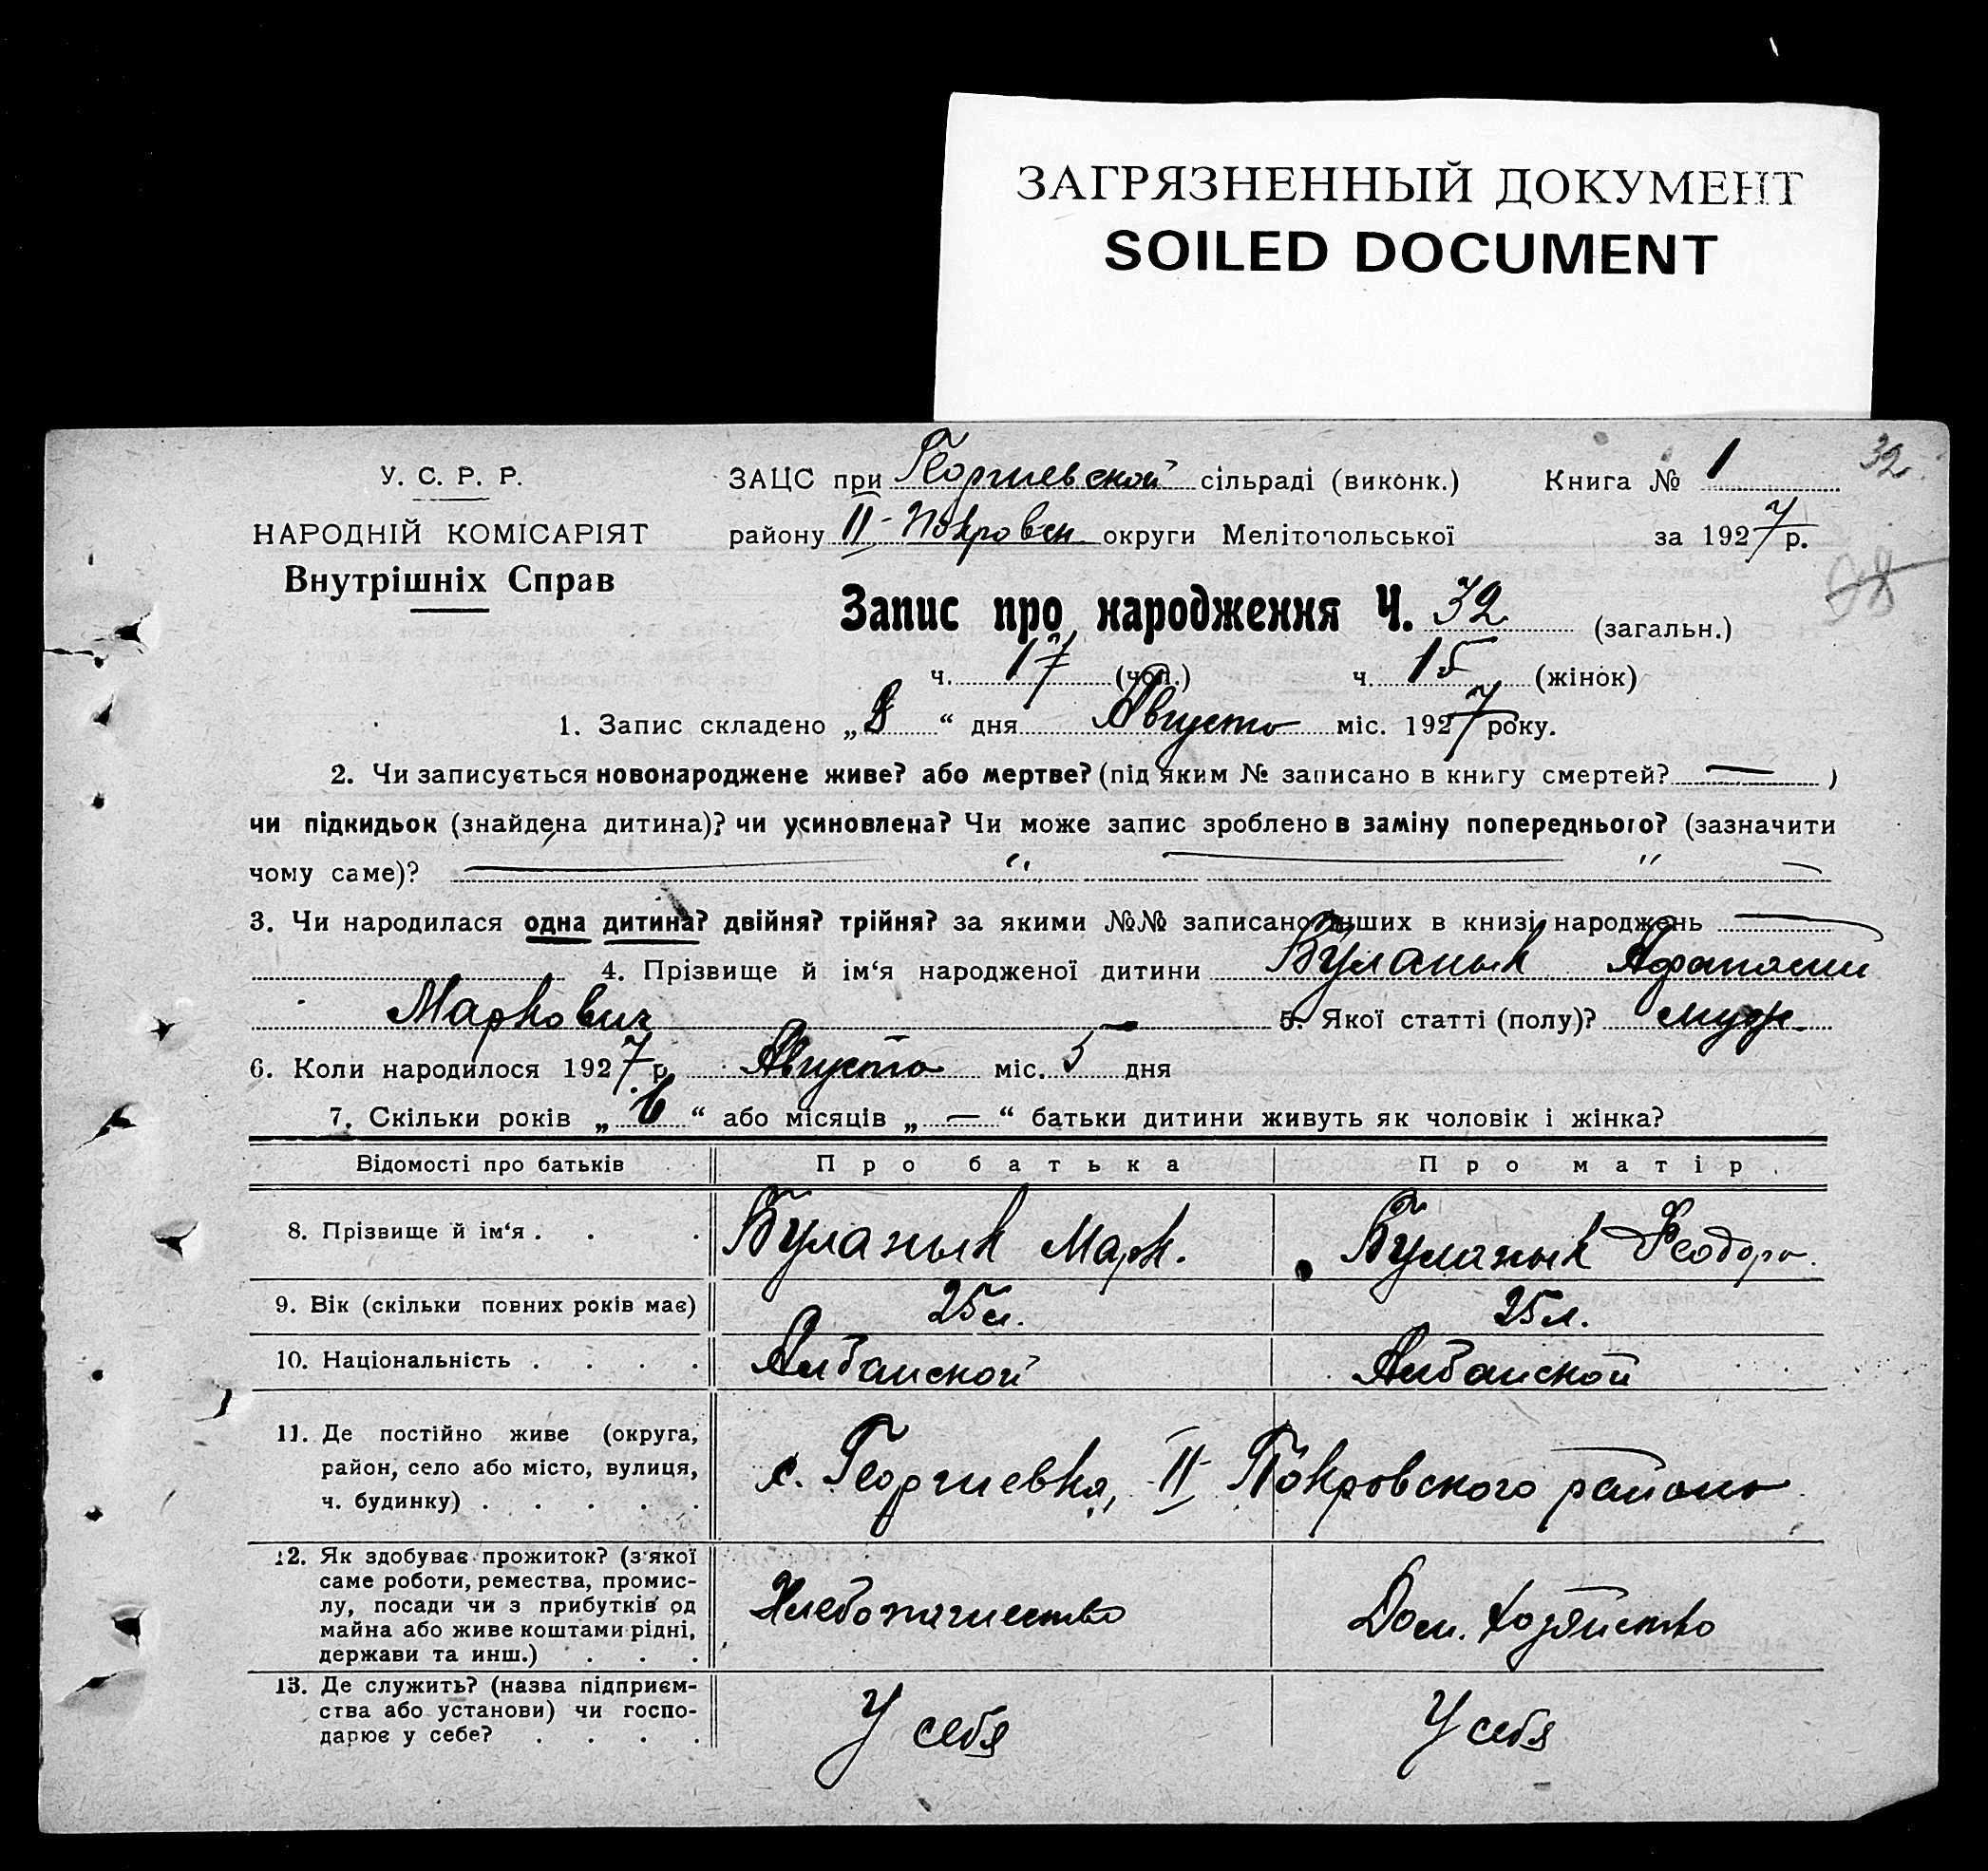 ЗАГРЯЗНЕННЫЙ ДОКУМЕНТ
SOILED DOCUMENT
32
У. С. Р. Р.
НАРОДНІЙ КОМІСАРІЯТ
Внутрішніх Справ
ЗАЦС при Георгиевской сільраді (виконк.) Книга № 1
району II-Покровск округи Мелітопольської за 1927 р.
Запис про народження Ч. 32 (загальн.)
ч. 17 (чол.) ч. 15 (жінок)
1. Запис складено „8“ дня Августа міс. 1927 року.
2. Чи записується новонароджене живе? або мертве? (під яким № записано в книгу смертей? — )
чи підкидьок (знайдена дитина)? чи усиновлена? Чи може запис зроблено в заміну попереднього? (зазначити
чому саме)? — „ — „ —
3. Чи народилася одна дитина? двійня? трійня? за якими №№ записано інших в книзі народжень —
4. Прізвище й ім‘я народженої дитини Буланык Афанасий
Маркович — 5. Якої статті (полу)? муж.
6. Коли народилося 1927 р. Августа міс. 5 дня
7. Скільки років „6“ або місяців „—“ батьки дитини живуть як чоловік і жінка?
Відомості про батьків Про батька Про матір
8. Прізвище й ім‘я . . . Буланык Марк. Буланык Феодора.
9. Вік (скільки повних років має) 25 л. 25 л.
10. Національність . . . . Албанской Албанской
11. Де постійно живе (округа,
район, село або місто, вулиця,
ч. будинку) . . . . .
с. Георгиевка, II Покровского района
12. Як здобуває прожиток? (з якої
саме роботи, ремества, промис-
лу, посади чи з прибутків од
майна або живе коштами рідні,
держави та инш.) . . .
Хлебопашество Дом. хозяйство
13. Де служить? (назва підприєм-
ства або установи) чи госпо-
дарює у себе? . . . .
У себя У себя